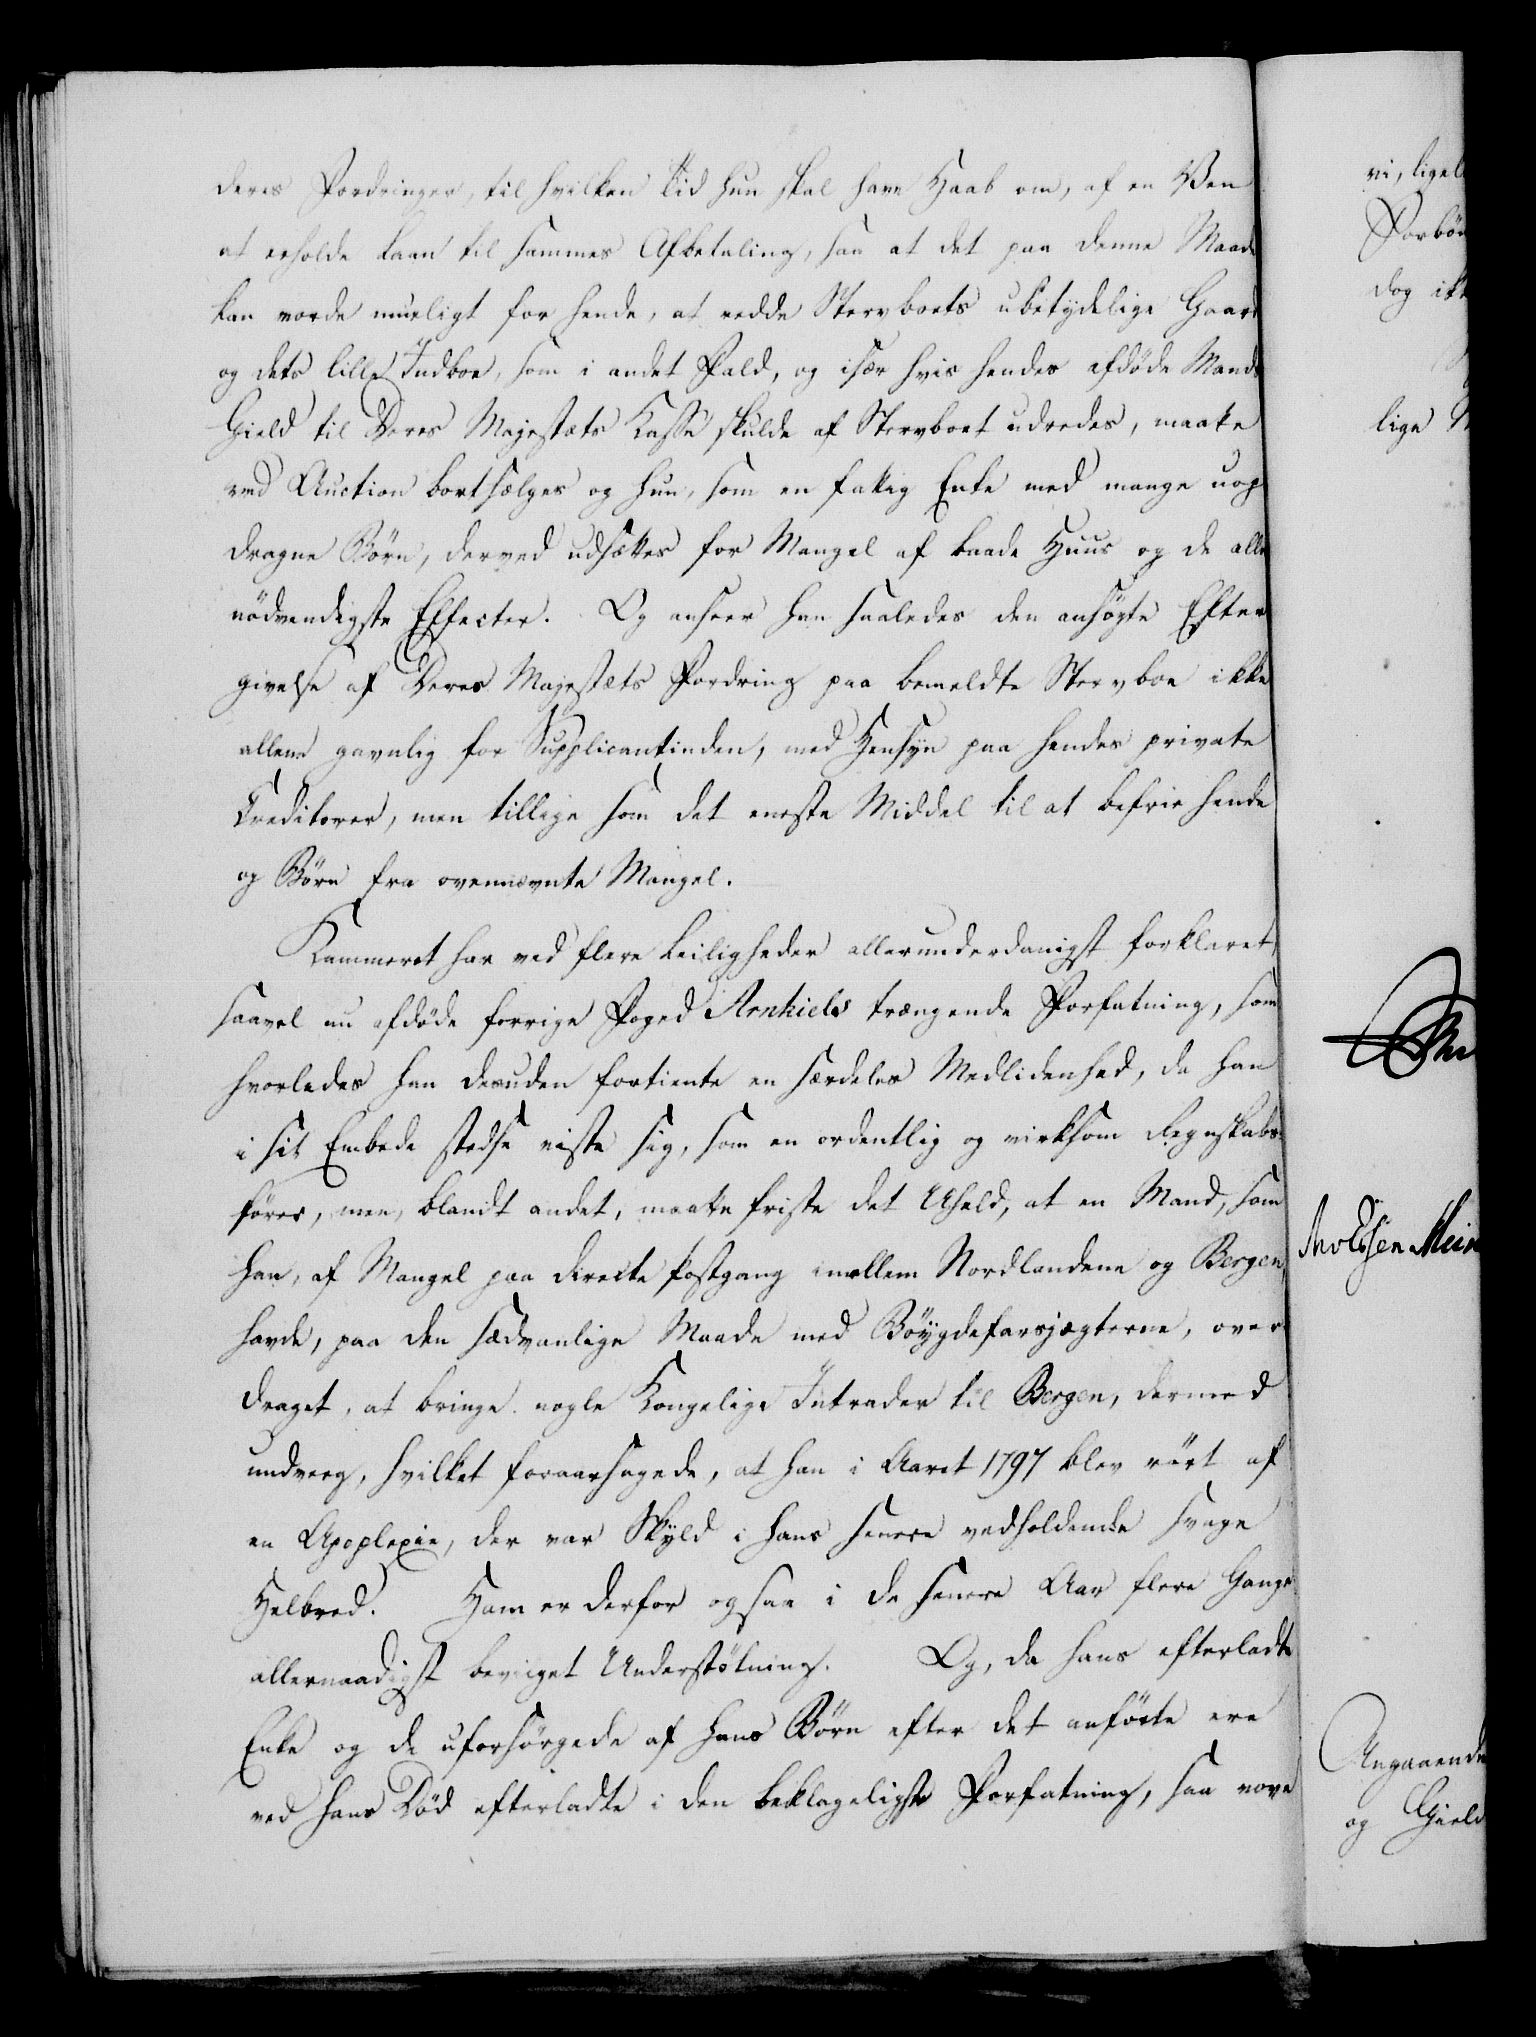 deres Fordringer, til hvilken Tid hun skal have Haab om, af en Ven
at erholde Laan til sammes Afbetaling, saa at det paa denne Maade
kan vorde mueligt for hende, at redde Stervboets ubetydelige Gaard
og dets lille Indboe, som i andet Fald, og især hvis hendes afdöde Mands
Gield til Deres Majestæts Kasse skulde af Stervboet udredes, maatte
ved Auction bortsælges og hun, som en fattig Enke med mange uop
dragne Börn, derved udsættes for Mangel af baade Huus og de aller
nödvendigste Effecter. Og anseer han saaledes den ansögte Efter
givelse af Deres Majestæts Fordring paa bemeldte Stervboe ikke
allene gavnlig for Supplicantinden, med Hensyn paa hendes private
Creditorer, men tillige som det eneste Middel til at befrie hende
og Börn fra ovennævnte Mangel.
Kammeret har ved flere Leiligheder allerunderdanigst forklaret,
saavel nu afdöde forrige Foged Arnkiels trængende Forfatning, som
hvorledes han desuden fortiente en særdeles Medlidenhed, da han
i sit Embede stedse viste sig, som en ordentlig og virksom Regnskabs-
förer, men, blandt andet, maatte friste det Uheld, at en Mand, som
han, af Mangel paa directe Postgang imellem Nordlandene og Bergen,
havde, paa den sædvanlige Maade med Böygdefarsjægterne, over
draget, at bringe nogle Kongelige Intrader til Bergen, dermed
undveeg, hvilket foraarsagede, at han i Aaret 1797 blev rört af
en Apoplexie, der var Skyld i hans senere vedholdende svage
Helbred. Ham er derfor ogsaa i de senere Aar flere Gange
allernaadigst bevilget Understötning. Og, da hans efterladte
Enke og de uforsörgede af hans Börn efter det anförte ere
ved hans Död efterladte i den beklageligste Forfatning, saa vove
vi, ligel
Forbön
dog ikk
lige
Angaaende
og Gield